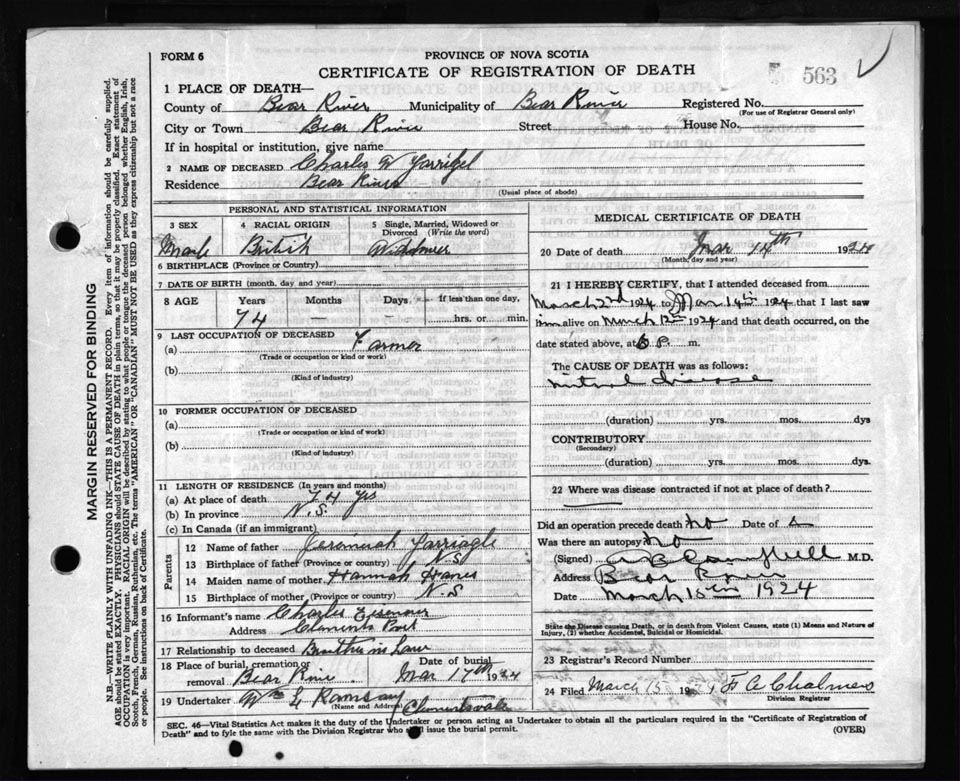 FORM 6
PROVINCE OF NOVA SCOTIA
CERTIFICATE OF REGISTRATION OF DEATH
563
1 PLACE OF DEATH—
County of Bear River Municipality of Bear River Registered No.
(For use of Registrar General only)
City or Town Bear River Street House No.
If in hospital or institution, give name
2 NAME OF DECEASED Charles W
Residence Bear River
(Usual place of abode)
PERSONAL AND STATISTICAL INFORMATION
3 SEX 4 RACIAL ORIGIN 5 Single, Married, Widowed or Divorced (Write the word)
Male British Widower
6 BIRTHPLACE (Province or Country)
7 DATE OF BIRTH (month, day and year)
8 AGE Years Months Days If less than one day,
74 — — hrs. or min.
9 LAST OCCUPATION OF DECEASED
(a) Farmer
(Trade or occupation or kind or work)
(b)
(Kind of industry)
10 FORMER OCCUPATION OF DECEASED
(a)
(Trade or occupation or kind of work)
(b)
(Kind of industry)
11 LENGTH OF RESIDENCE (In years and months)
(a) At place of death 74 yrs
(b) In province N.S.
(c) In Canada (if an immigrant)
Parents
12 Name of father Jeremiah
13 Birthplace of father (Province or country) N.S
14 Maiden name of mother Hannah
15 Birthplace of mother (Province or country) N.S
16 Informant's name Charles
Address Clements Port
17 Relationship to deceased Brother in Law
18 Place of burial, cremation or removal Bear River Date of burial Mar 17th 1924
19 Undertaker Wm E Ramsay Clementsvale
(Name and Address)
MEDICAL CERTIFICATE OF DEATH
20 Date of death Mar 14th 1924
(Month, day and year)
21 I HEREBY CERTIFY, that I attended deceased from
March 2nd 1924 to Mar 14th 1924 that I last saw
him alive on March 12th 1924 and that death occurred, on the
date stated above, at P. m.
The CAUSE OF DEATH was as follows:
mitral disease
(duration) yrs. mos. dys
CONTRIBUTORY
(Secondary)
(duration) yrs. mos. dys.
22 Where was disease contracted if not at place of death?
Did an operation precede death No Date of
Was there an autopsy No
(Signed) Campbell M.D.
Address Bear River
Date March 15th 1924
State the Disease causing Death, or in death from Violent Causes, state (1) Means and Nature of
Injury, (2) whether Accidental, Suicidal or Homicidal.
23 Registrar's Record Number
24 Filed March 15 192 F A Chalmers
Division Registrar
SEC. 46—Vital Statistics Act makes it the duty of the Undertaker or person acting as Undertaker to obtain all the particulars required in the "Certificate of Registration of
Death" and to fyle the same with the Division Registrar who shall issue the burial permit.
(OVER)
MARGIN RESERVED FOR BINDING
N.B.—WRITE PLAINLY WITH UNFADING INK—THIS IS A PERMANENT RECORD. Every item of information should be carefully supplied.
AGE should be stated EXACTLY. PHYSICIANS should STATE CAUSE OF DEATH in plain terms, so that it may be properly classified. Exact statement of
OCCUPATION is very important. RACIAL ORIGIN will be described by stating to what people or tongue the deceased person belonged whether English, Irish,
Scotch, French, German, Russian, Ruthenian, etc. The terms "AMERICAN" or "CANADIAN" MUST NOT BE USED as they express citizenship but not a race
or people. See instructions on back of Certificate.